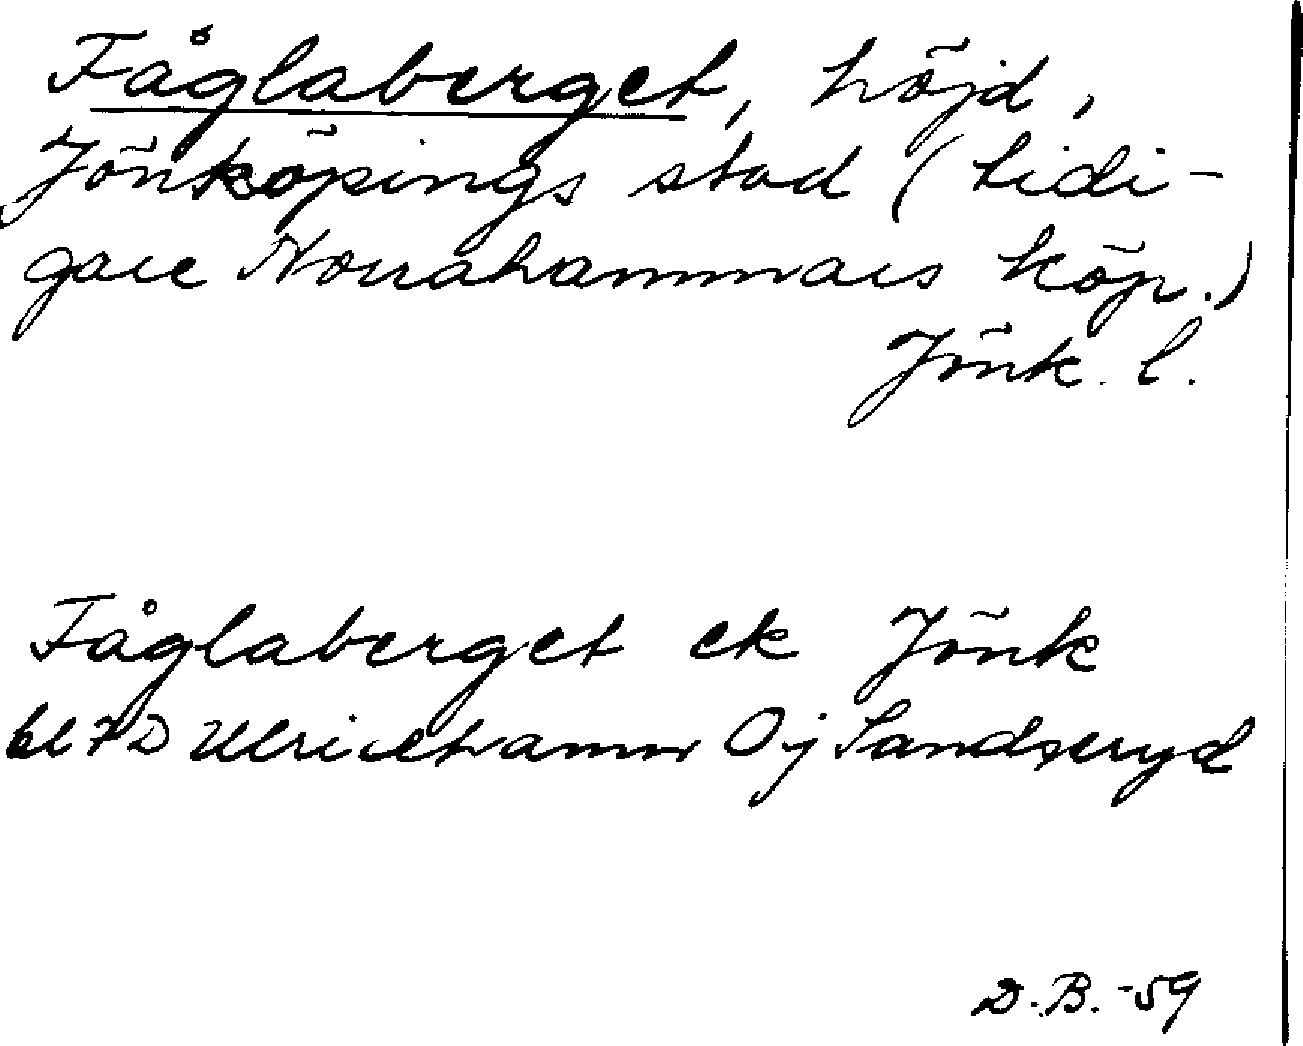 Fåglaberget, höjd,
Jönköpings stad (tidi-
gare Norrahammars köp.)
Jönk. l.
Fåglaberget ek Jönk
bl 7D Ulricehamn Öj Sandseryd
D.B. -59